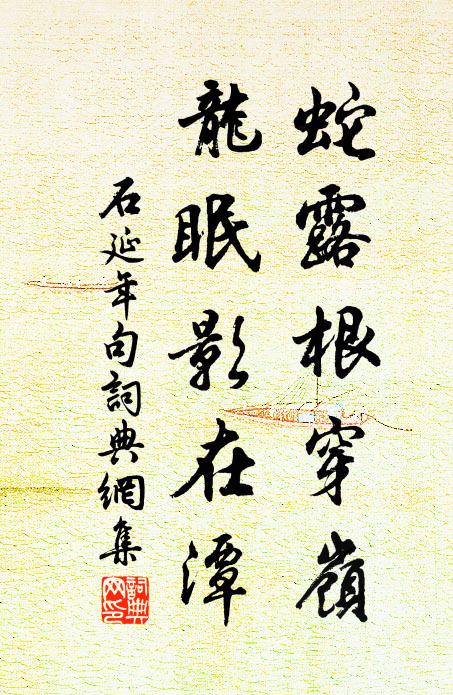 蛇露根穿嶺
龍眠影在潭
石延年句詞典網集
詞典網印